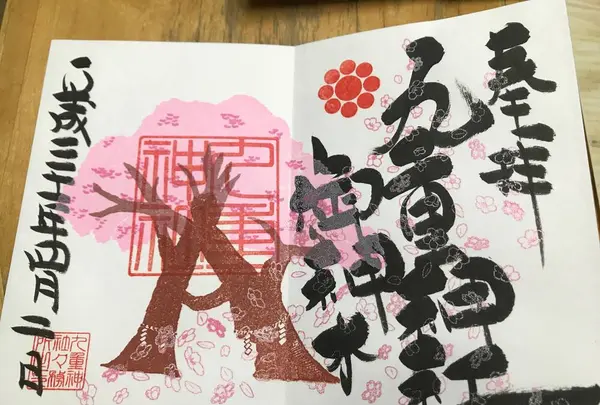 奉拝
九重神社
御神木
九重
神社
平成三十年四月二日
九重神
社々務
所之印